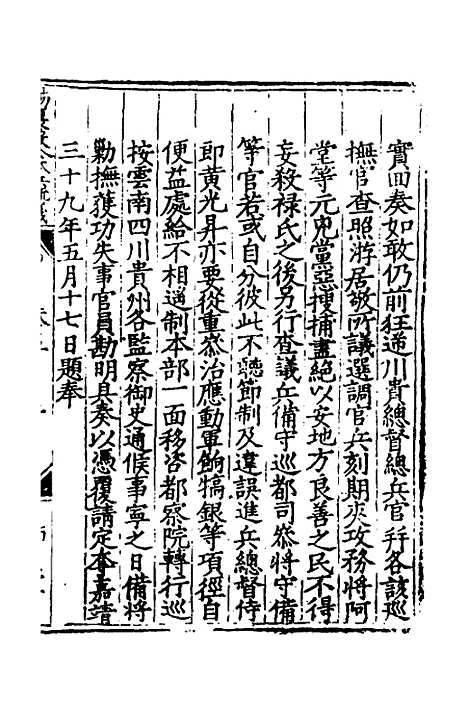 實回奏如敢仍前狂逞川貴總督總兵官幷各該廵
撫官查照游居敬所議選調官兵刻期夾攻務將阿
堂等元兇黨惡捜捕盡絕以安地方良善之民不得
妄殺禄氏之後另行查議兵備守廵都司叅將守備
等官若或自分彼此不聽節制及違誤進兵總督侍
即黄光昇亦要從重叅治應動軍餉犒銀等項徑自
便益處給不相遥制本部一面移咨都察院轉行廵
按雲南四川貴州各監察御史通候事寧之日備將
勦撫獲功失事官員勘明具奏以憑覆請定奪嘉靖
三十九年五月十七日題奉